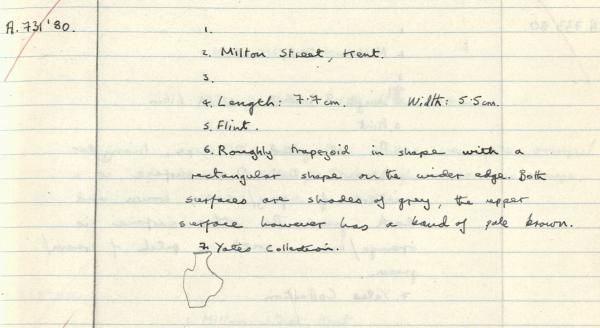 A.731'80.
1.
2. Milton Street, Kent.
3.
4. Length: 7.7cm. Width: 5.5cm.
5. Flint.
6. Roughly trapezoid in shape with a
rectangular shape on the wider edge. Both
surfaces are shades of grey, the upper
surface however has a band of pale brown.
7. Yates Collection.